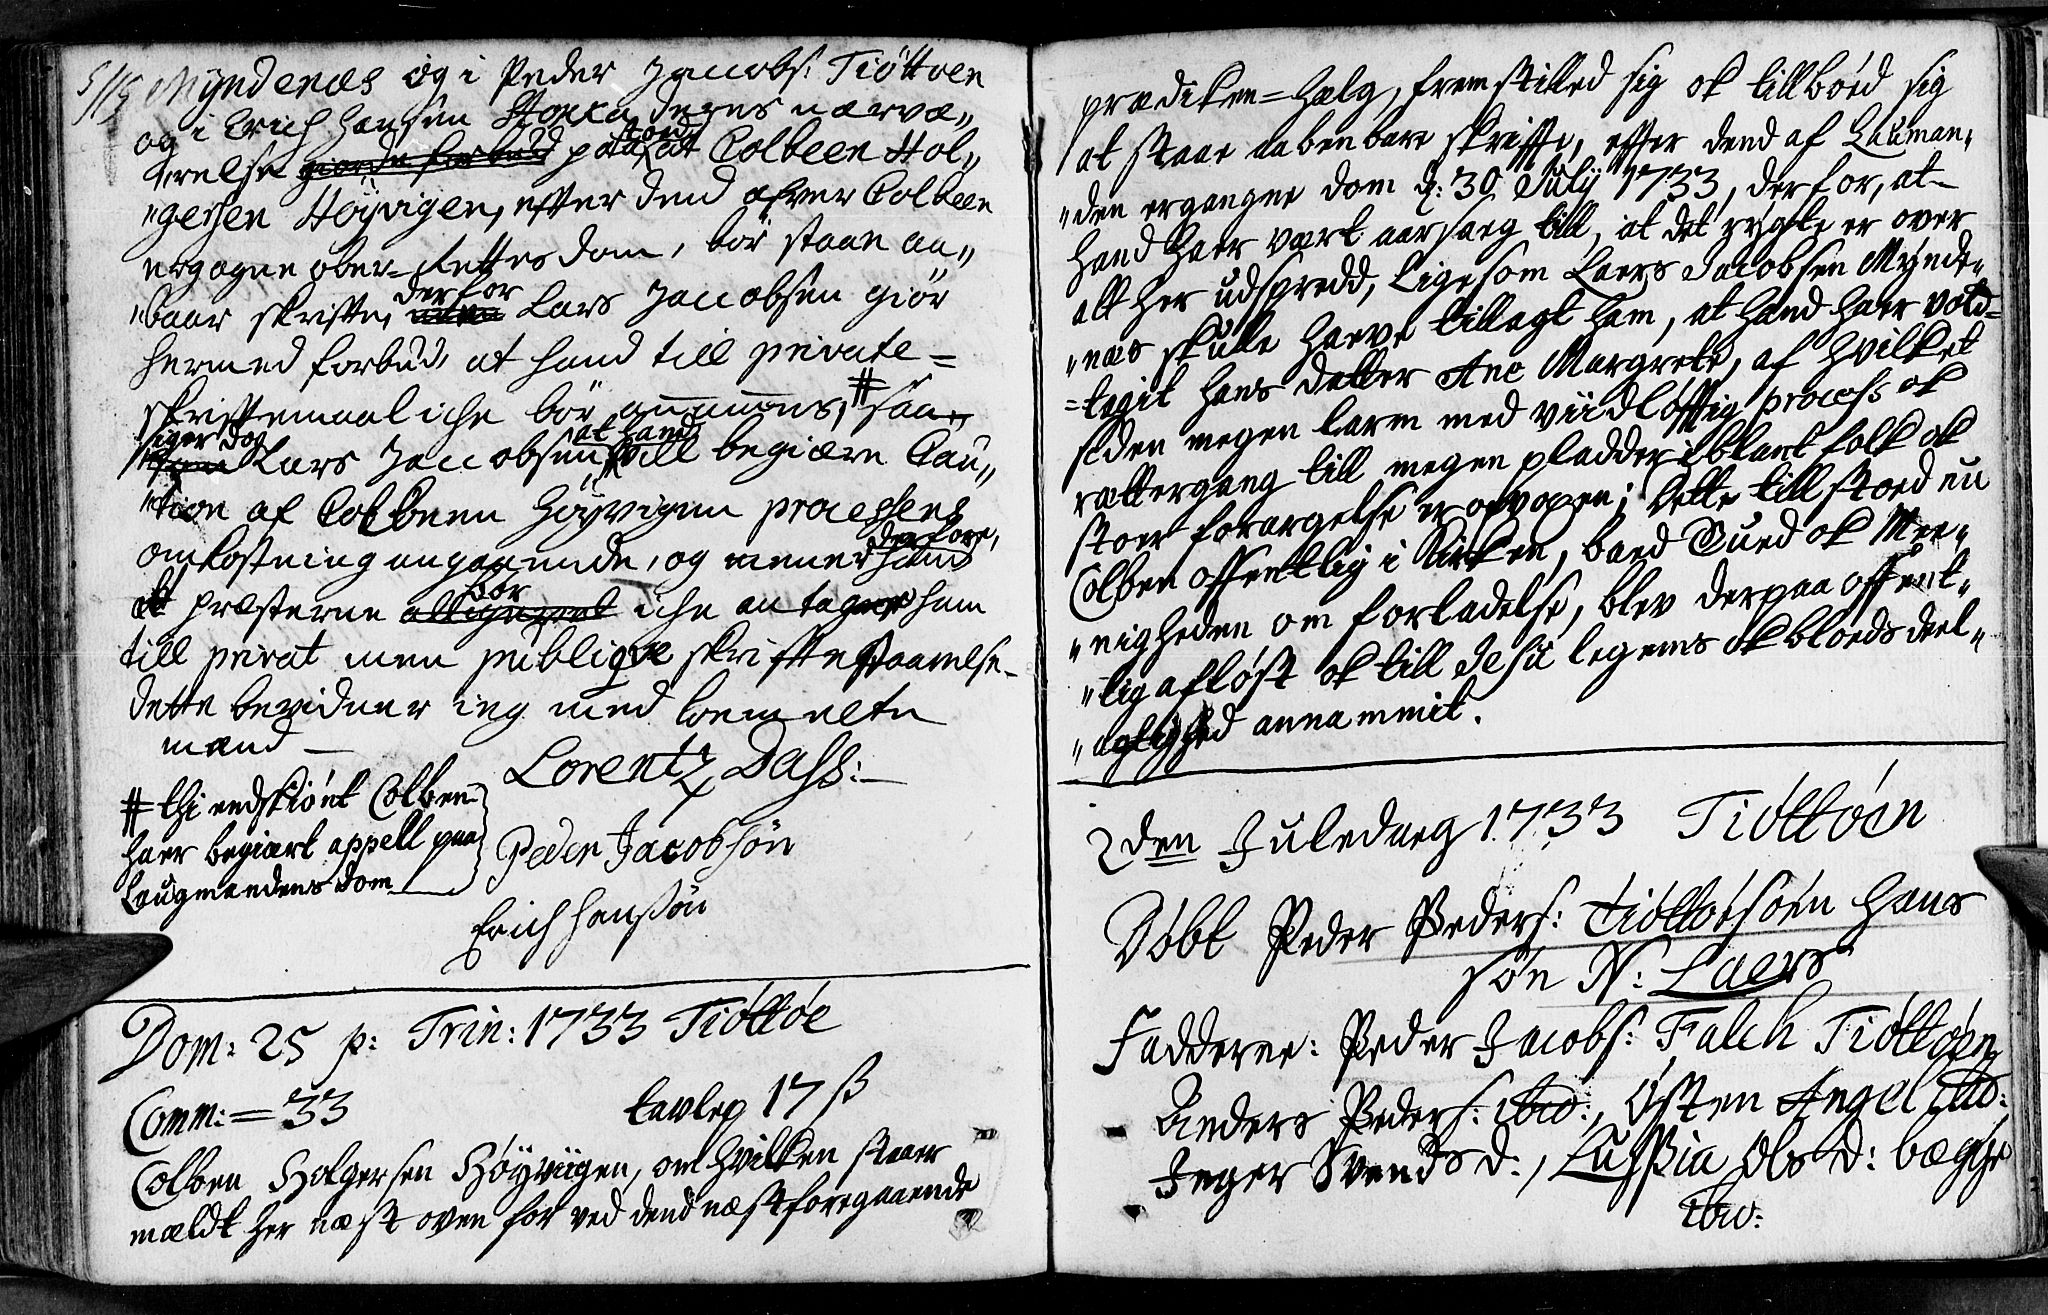 Myndenæs og i Peder Jacobs: Tiøttøen
og i Erich Hansøn Stocka deres nærvæ„
„relse giorde forbud paa at Colbeen Hol„
„gersen Høyvigen, efter dend ofver Colbeen
ergagne ober-Rettes dom, bør staae aa„
„baar skrifte, derfor Lars Jacobsen giør
hermed forbud, at hand till private=
skriftemaal iche bør annammes, # saa
siger dog Lars Jacobsøn at hand vill begiære Cau„
„tion af Colbeen Høyvigen processens
omkostning angaaende, og mener derfore,
at præsterne bør iche antage ham
till privat men publiqve skrifte staaelse.
dette bevidner ieg med bemelte
mænd —
Lorentz Dass:
# thi endskiønt Colben
haer begiært appell paa
Laugmandens dom
Peder Jacobsøn
Erich Hansøn
Dom: 25 p: Trin: 1733 Tiøttøe
Comm: = 33 tavlep 17 ß
Colben Holgersen Høyviigen, om hvilken staaer
mældt her næst oven for ved dend næstforegaaende
prædiken=hælg, fremstilled sig ok tillbød sig
at staae aabenbare skrifte, efter dend af Lauman„
„den ergangne dom d: 30 July 1733, derfor, at
hand haer vært aarsaeg till, at det rygte er over
alt her udspredd, ligesom Laers Jacobsen Mynde„
„næs skule haeve tillagt ham, at hand haer vold=
=tagit hans datter Ane Margrete, af hvilket
siden megen larm med viidløfftig process ok
rættergang till megen pladder iblant folk ok
stoer forargelse er opvoxen; dette tillstoed nu
Colben offentlig i Kirken, baed Gued ok Mee„
„nigheden om forladelse, blev derpaa offent„
„lig afløst ok till Jesu legems ok bloeds deel„
„agtighed annammit.
2den Juledaeg 1733 Tiøttøen
Døbt Peder Peders: Tiøttøsøen hans
søn N: Laers
Fadderne: Peder Jacobs: Falch Tiøttøen
Anders Peders: ibid:, Østen Angel ibid:
Inger Svends d:, Lussia Ols d: begge
ibid: